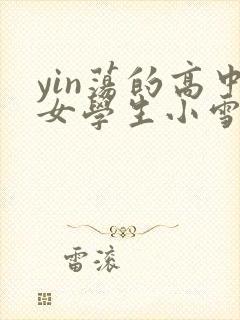 yin蕩的高中
女學生小雪
雷滚